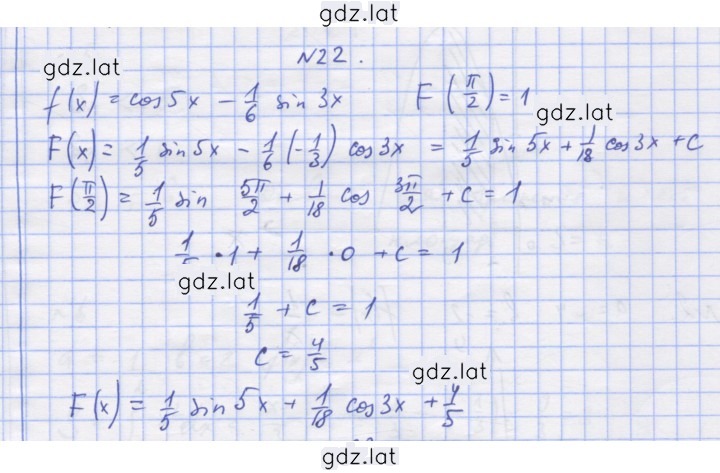 gdz.lat
N22.
gdz.lat
f(x) = cos 5x - 1/6 sin 3x F(π/2) = 1
gdz.lat
F(x) = 1/5 sin 5x - 1/6 (-1/3) cos 3x = 1/5 sin 5x + 1/18 cos 3x + C
F(π/2) = 1/5 sin 5π/2 + 1/18 cos 3π/2 + C = 1
1/5 · 1 + 1/18 · 0 + C = 1
gdz.lat
1/5 + C = 1
C = 4/5
gdz.lat
F(x) = 1/5 sin 5x + 1/18 cos 3x + 4/5
gdz.lat